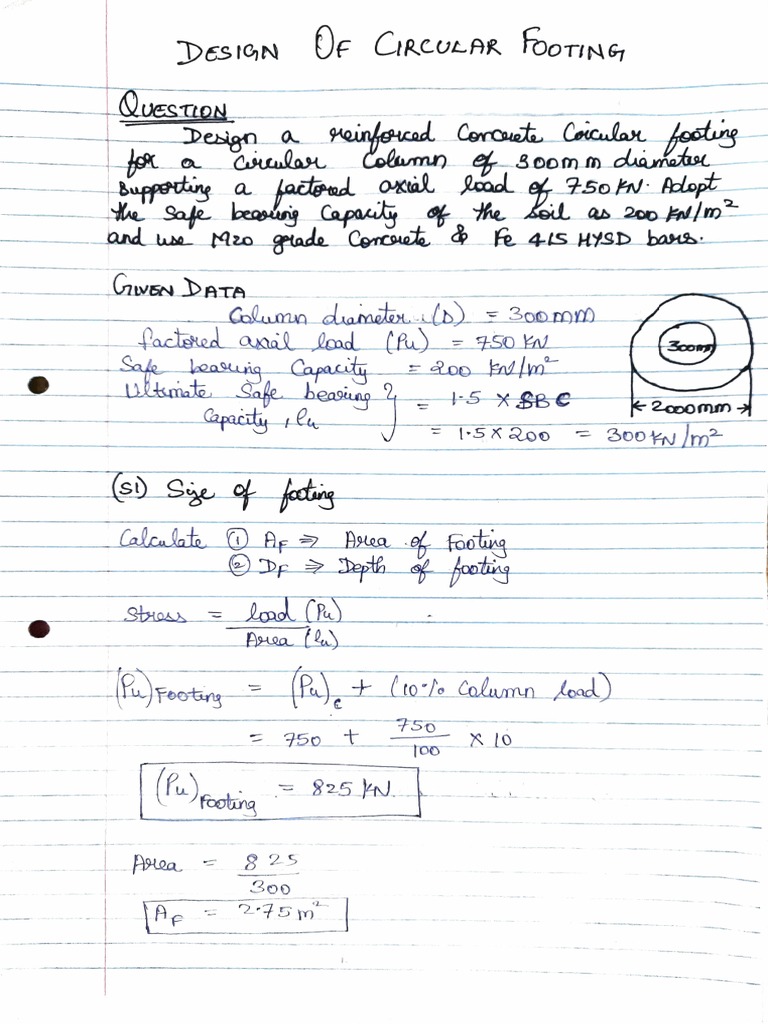 DESIGN OF CIRCULAR FOOTING
QUESTION
Design a reinforced Concrete Circular footing
for a circular Column of 300mm diameter
supporting a factored axial load of 750 KN. Adopt
the safe bearing Capacity of the soil as 200 KN/m²
and use M20 grade Concrete & Fe 415 HYSD bars.
GIVEN DATA
Column diameter (D) = 300mm
factored axial load (Pu) = 750 KN
Safe bearing Capacity = 200 KN/m²
Ultimate Safe bearing } = 1.5 × SBC
Capacity, lu
= 1.5 × 200 = 300 KN/m²
300mm
2000mm
(S1) Size of footing
Calculate ① AF ⇒ Area of Footing
② DF ⇒ Depth of footing
Stress = load (Pu)
Area (lu)
(Pu)Footing = (Pu)c + (10% Column load)
= 750 + 750/100 × 10
(Pu)Footing = 825 KN.
Area = 825
300
AF = 2.75m²